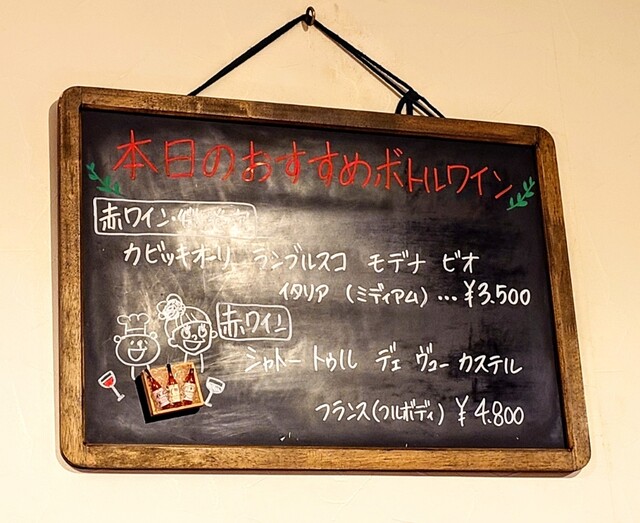 本日のおすすめボトルワイン
赤ワイン・
カビッキオーリ ランブルスコ モデナ ビオ
イタリア (ミディアム)…¥3.500
赤ワイン
シャトー トゥル デェ ヴュー カステル
フランス(フルボディ) ¥4.800